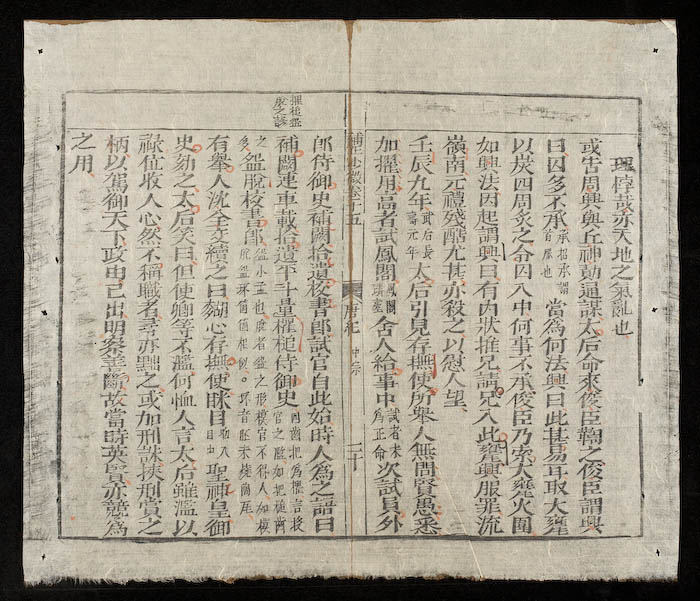 理悖哉亦天地之氣亂也
或告周興與丘神勣通謀太后命來俊臣鞫之俊臣謂興
曰囚多不承承招承謂首服也當為何法興曰此甚易耳取大甕
以炭四周炙之令囚入中何事不承俊臣乃索大甕火圍
如興法因起謂興曰有內狀推兄請兄入此甕興服罪流
嶺南元禮殘酷尤甚亦殺之以慰人望
壬辰九年武后長壽元年太后引見存撫使所舉人無問賢愚悉
加擢用高者試鳳閣鳳閣舍人給事中試者未為正命次試員外
卷十五 唐紀 中宗 二十
郎侍御史補闕拾遺校書郎試官自此始時人為之語曰
補闕連車載拾遺平斗量欋椎侍御史四齒杷為欋言授官之濫如把推
盌脫校書郎盌小盂也
有舉人沈全交續之曰糊心存撫使眯目物入目聖神皇御
史劾之太后笑曰但使卿等不濫何恤人言太后雖濫以
祿位收人心然不稱職者尋亦黜之或加刑誅挾刑賞之
柄以駕御天下政由己出明察善斷故當時英賢亦競為
之用